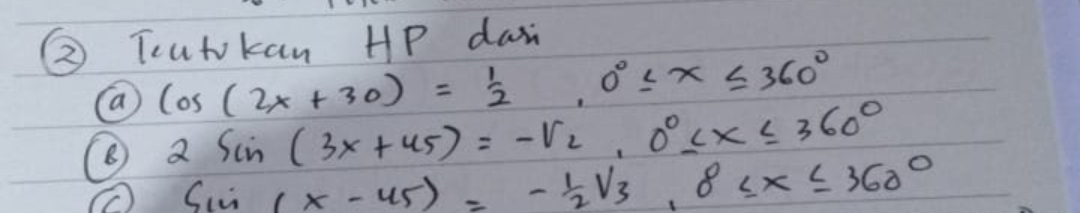 ② Tentukan HP dari
ⓐ Cos (2x + 30) = 1/2 , 0° ≤ x ≤ 360°
ⓑ 2 Sin (3x + 45) = -√2 , 0° ≤ x ≤ 360°
ⓒ Sin (x - 45) = -1/2 √3 , 0° ≤ x ≤ 360°